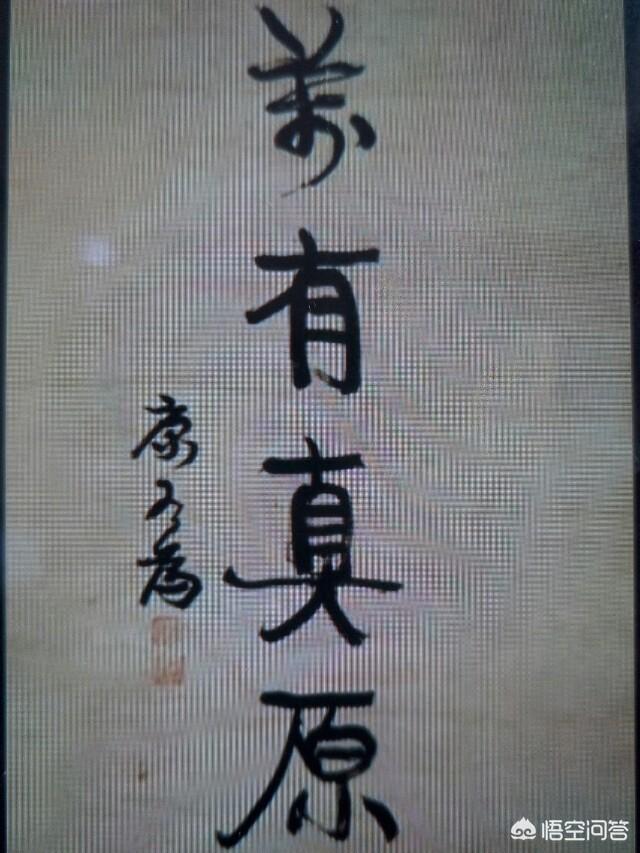 萬有真原
康有為
悟空问答